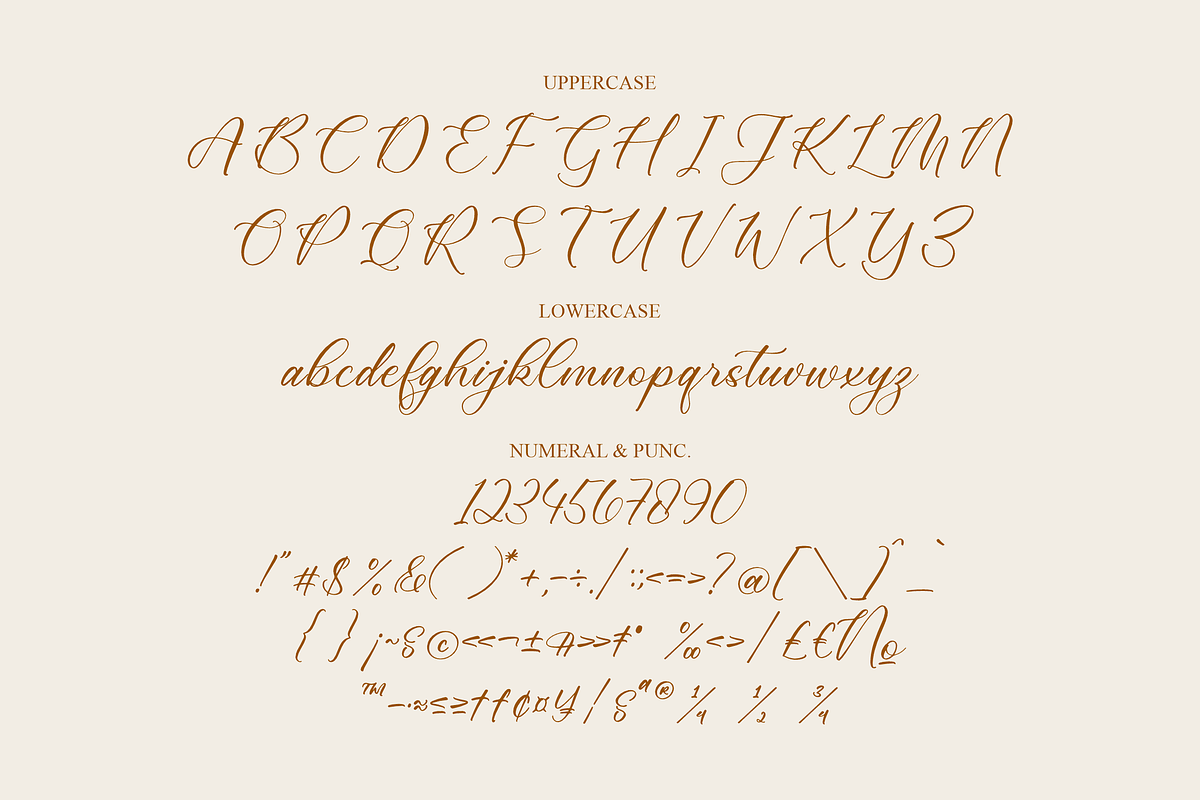 UPPERCASE
ABCDEFGHIJKLMN
OPQRSTUVWXYZ
LOWERCASE
abcdefghijklmnopqrstuvwxyz
NUMERAL & PUNC.
1234567890
!"#$%&()*+,-÷./:;<=>?@[\]^_`
{}¡~§©««¬±ª»»‡•‰<>/£€№
™–·≈≤≥†ƒ¢¤¥/§ª®¼ ½ ¾